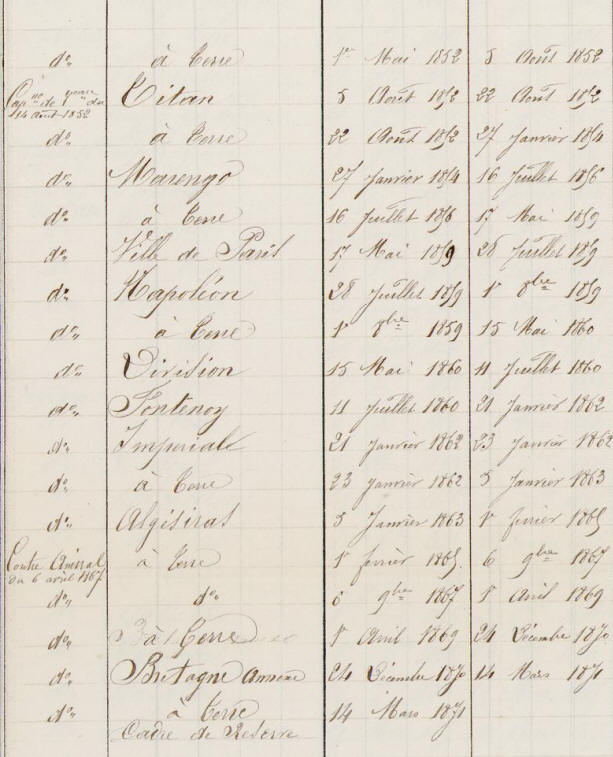 do à Terre 1er Mai 1852 5 Août 1852
Capne de 1 du
14 août 1852
Titan 5 Août 1852 22 Août 1852
do à Terre 22 Août 1852 27 Janvier 1854
do Marengo 27 Janvier 1854 16 Juillet 1856
do à Terre 16 Juillet 1856 17 Mai 1859
do Ville de Paris 17 Mai 1859 28 Juillet 1859
do Napoléon 28 Juillet 1859 1r 8bre 1859
do à Terre 1r 8bre 1859 15 Mai 1860
do Division 15 Mai 1860 11 Juillet 1860
do Fontenoy 11 Juillet 1860 21 Janvier 1862
do Imperiale 21 Janvier 1862 23 Janvier 1862
do à Terre 23 Janvier 1862 5 Janvier 1863
do Algésiras 5 Janvier 1863 1r février 1865
Contre Amiral
du 6 avril 1867
à Terre 1r février 1865. 6 9bre 1867
do do 6 9bre 1867 1r Avril 1869
do à Terre 1r Avril 1869 24 Décembre 1870
do Bretagne annexe 24 Décembre 1870 14 Mars 1871
do à Terre 14 Mars 1871
Cadre de Réserve